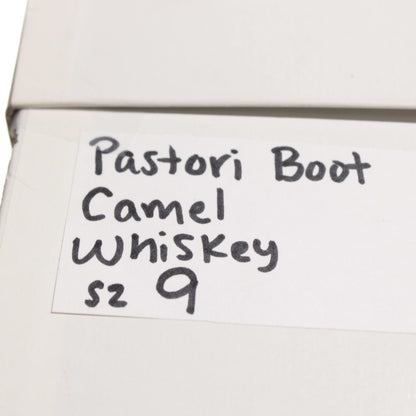 Pastori Boot
Camel
Whiskey
sz 9